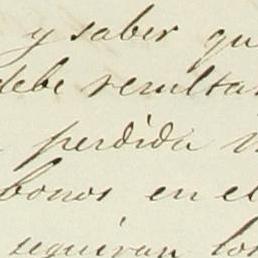 y saber qu
debe resulta
perdida
bonos en el
seguiran los